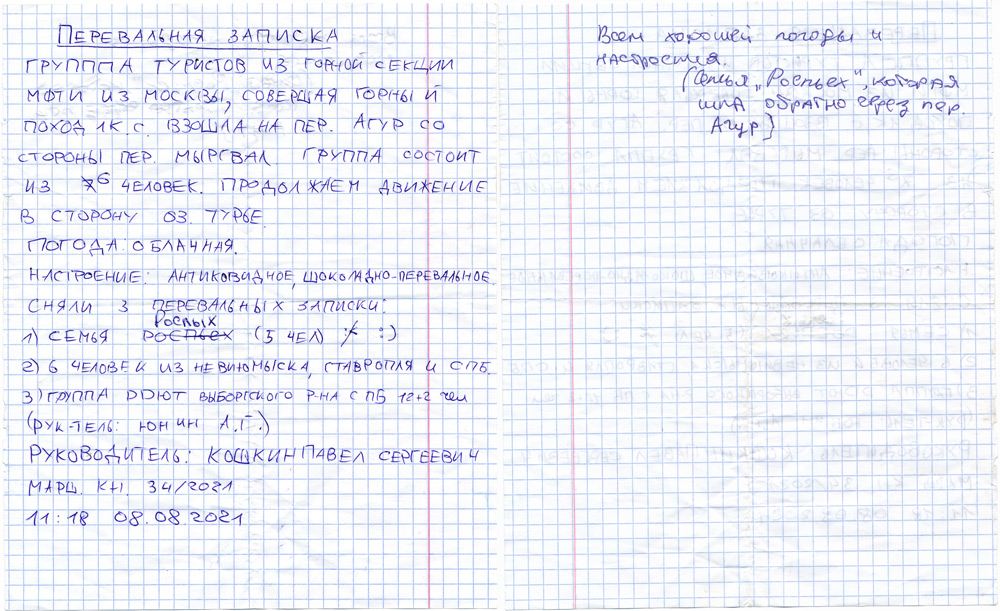 ПЕРЕВАЛЬНАЯ ЗАПИСКА
ГРУПППА ТУРИСТОВ ИЗ ГОРНОЙ СЕКЦИИ
МФТИ ИЗ МОСКВЫ, СОВЕРШАЯ ГОРНЫЙ
ПОХОД 1К.С. ВЗОШЛА НА ПЕР. АГУР СО
СТОРОНЫ ПЕР. МЫРГВАЛ ГРУППА СОСТОИТ
ИЗ 7 6 ЧЕЛОВЕК. ПРОДОЛЖАЕМ ДВИЖЕНИЕ
В СТОРОНУ ОЗ. ТУРЬЕ.
ПОГОДА: ОБЛАЧНАЯ.
НАСТРОЕНИЕ: АНТИКОВИДНОЕ, ШОКОЛАДНО-ПЕРЕВАЛЬНОЕ.
СНЯЛИ 3 ПЕРЕВАЛЬНЫХ ЗАПИСКИ:
РОСПЫХ
1) СЕМЬЯ РОСПЬЕХ (5 ЧЕЛ) :)
2) 6 ЧЕЛОВЕК ИЗ НЕВИНОМЫСКА, СТАВРОПЛЯ И СПБ.
3) ГРУППА DDЮТ ВЫБОРГСКОГО Р-НА СПБ 12+2 чел
(РУК-ТЕЛЬ: ЮНИН А.Г.)
РУКОВОДИТЕЛЬ: КОШКИН ПАВЕЛ СЕРГЕЕВИЧ
МАРШ. КН. 34/2021
11:18 08.08.2021
Всем хорошей погоды и
настроения.
(Семья "Роспьех", которая
шла обратно через пер.
Агур)